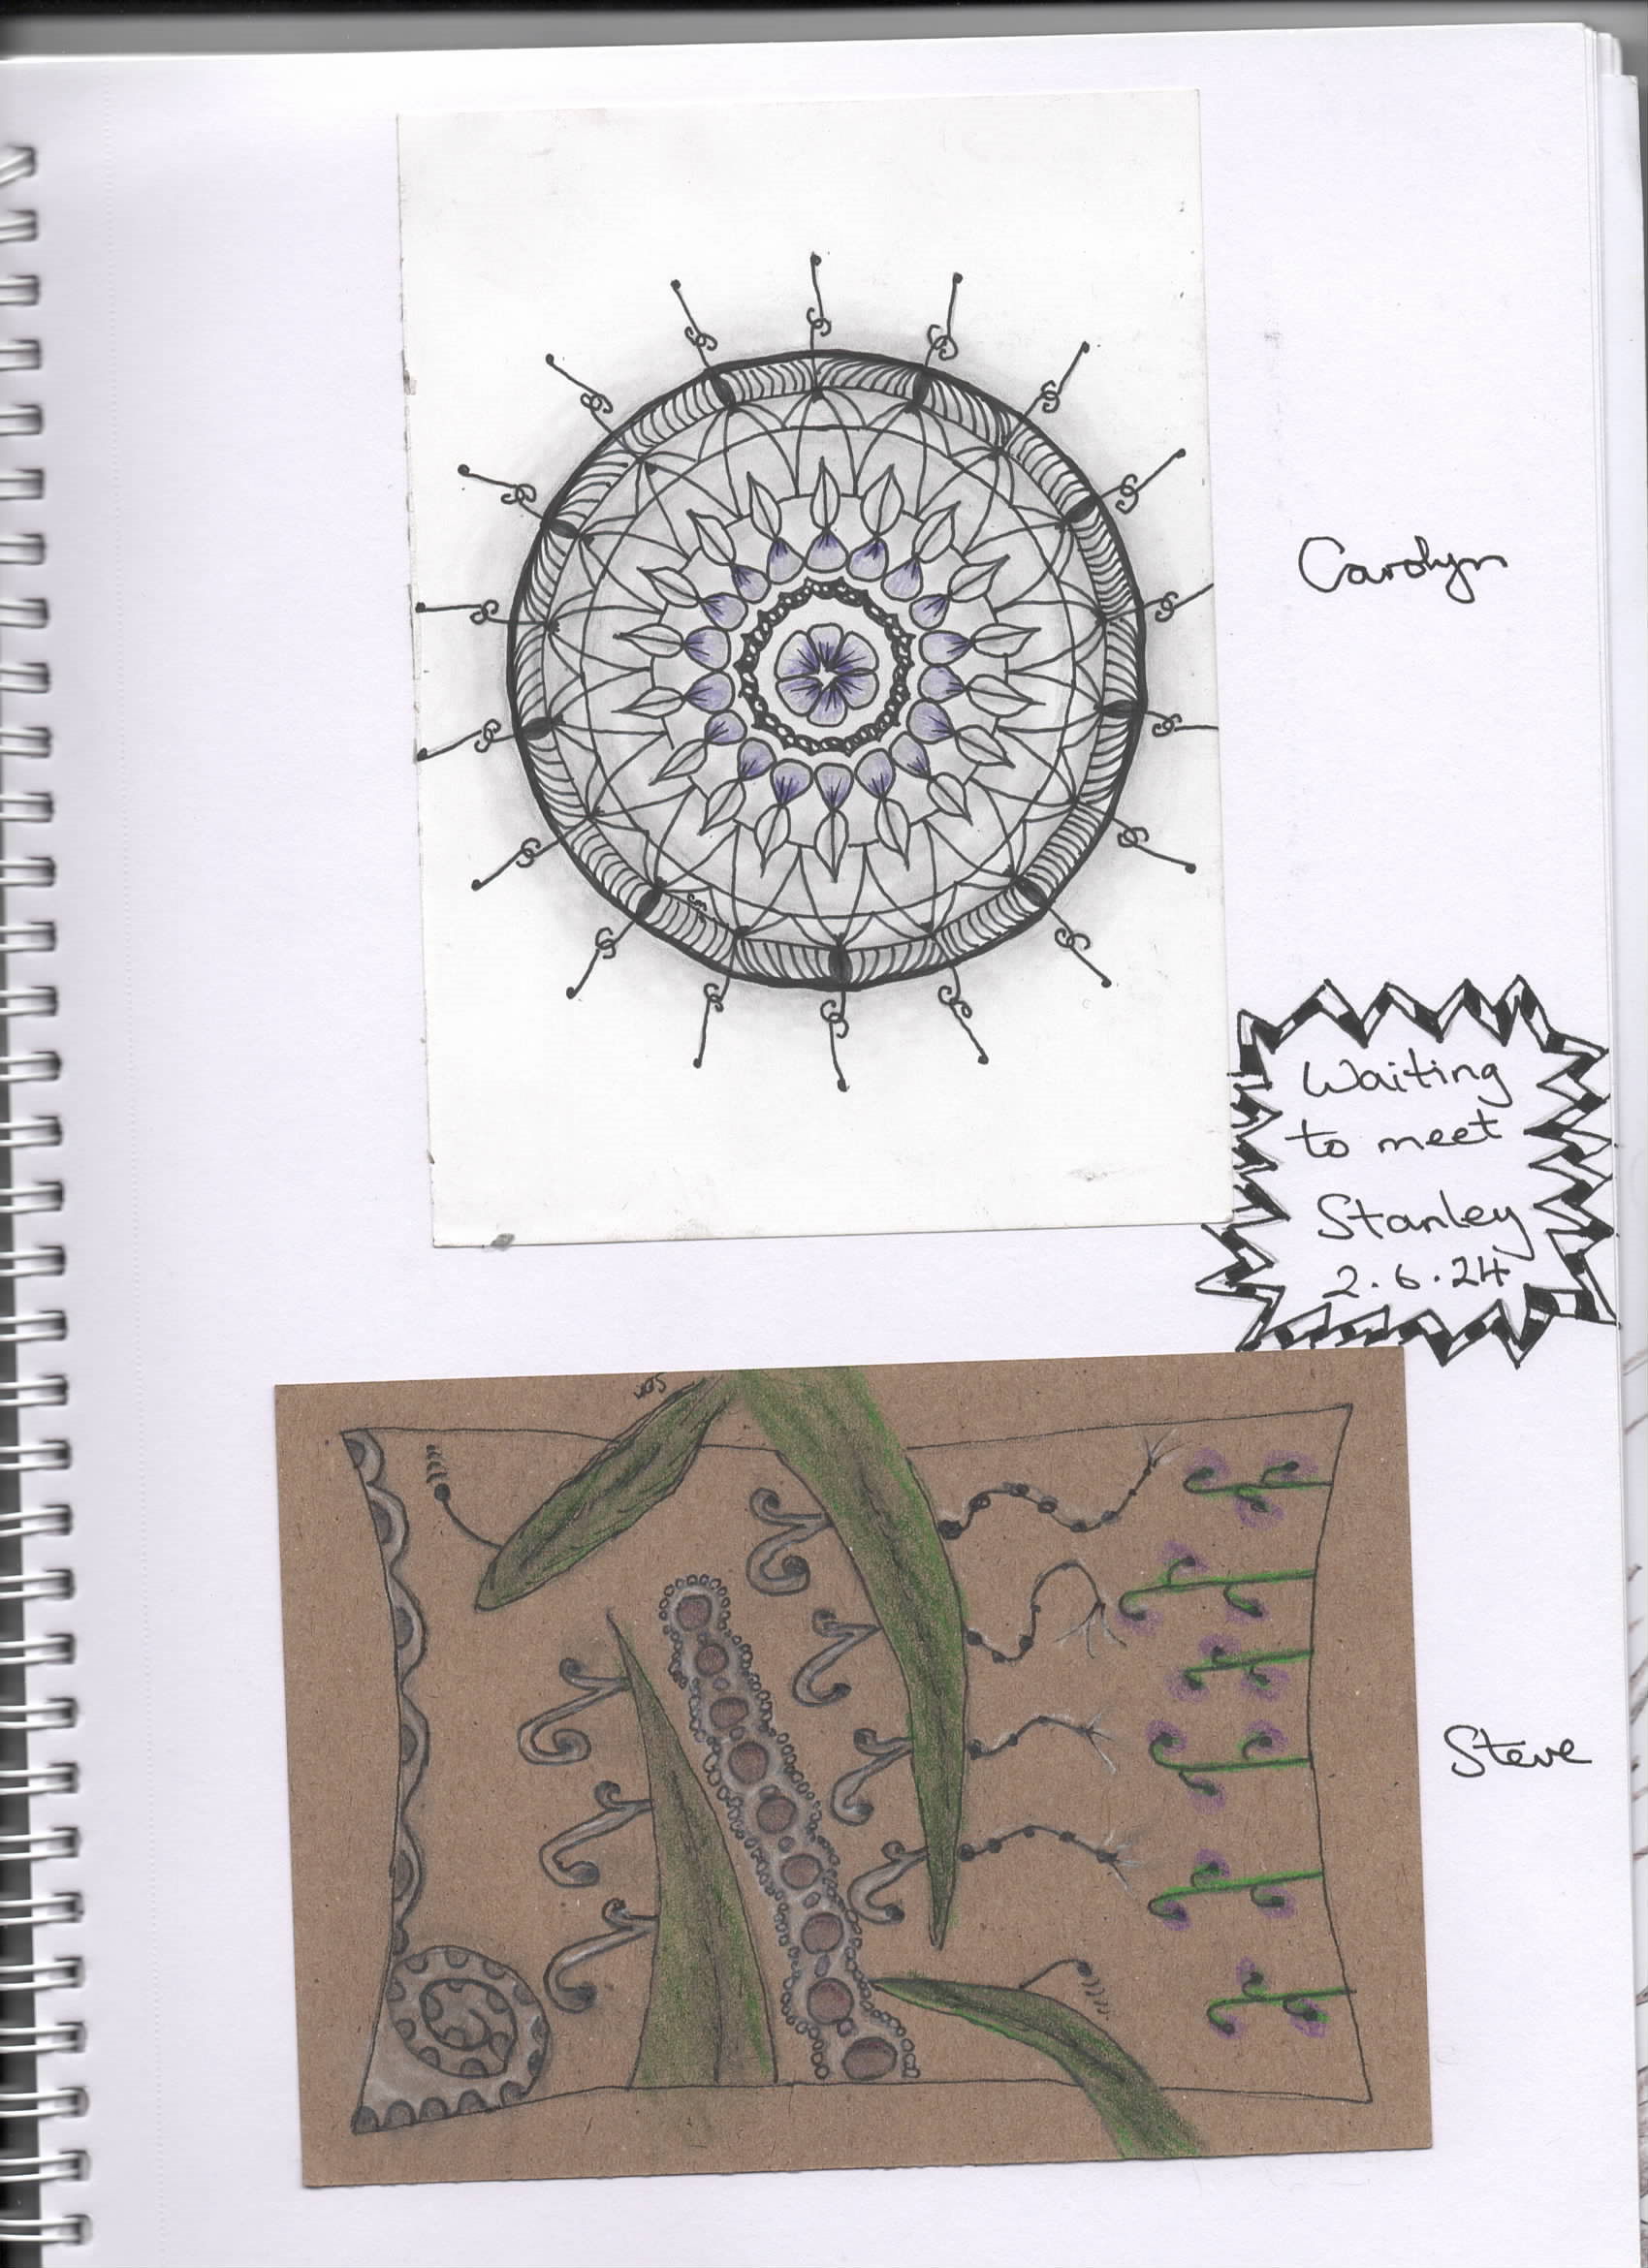 Carolyn
Waiting
to meet
Stanley
2.6.24
Steve